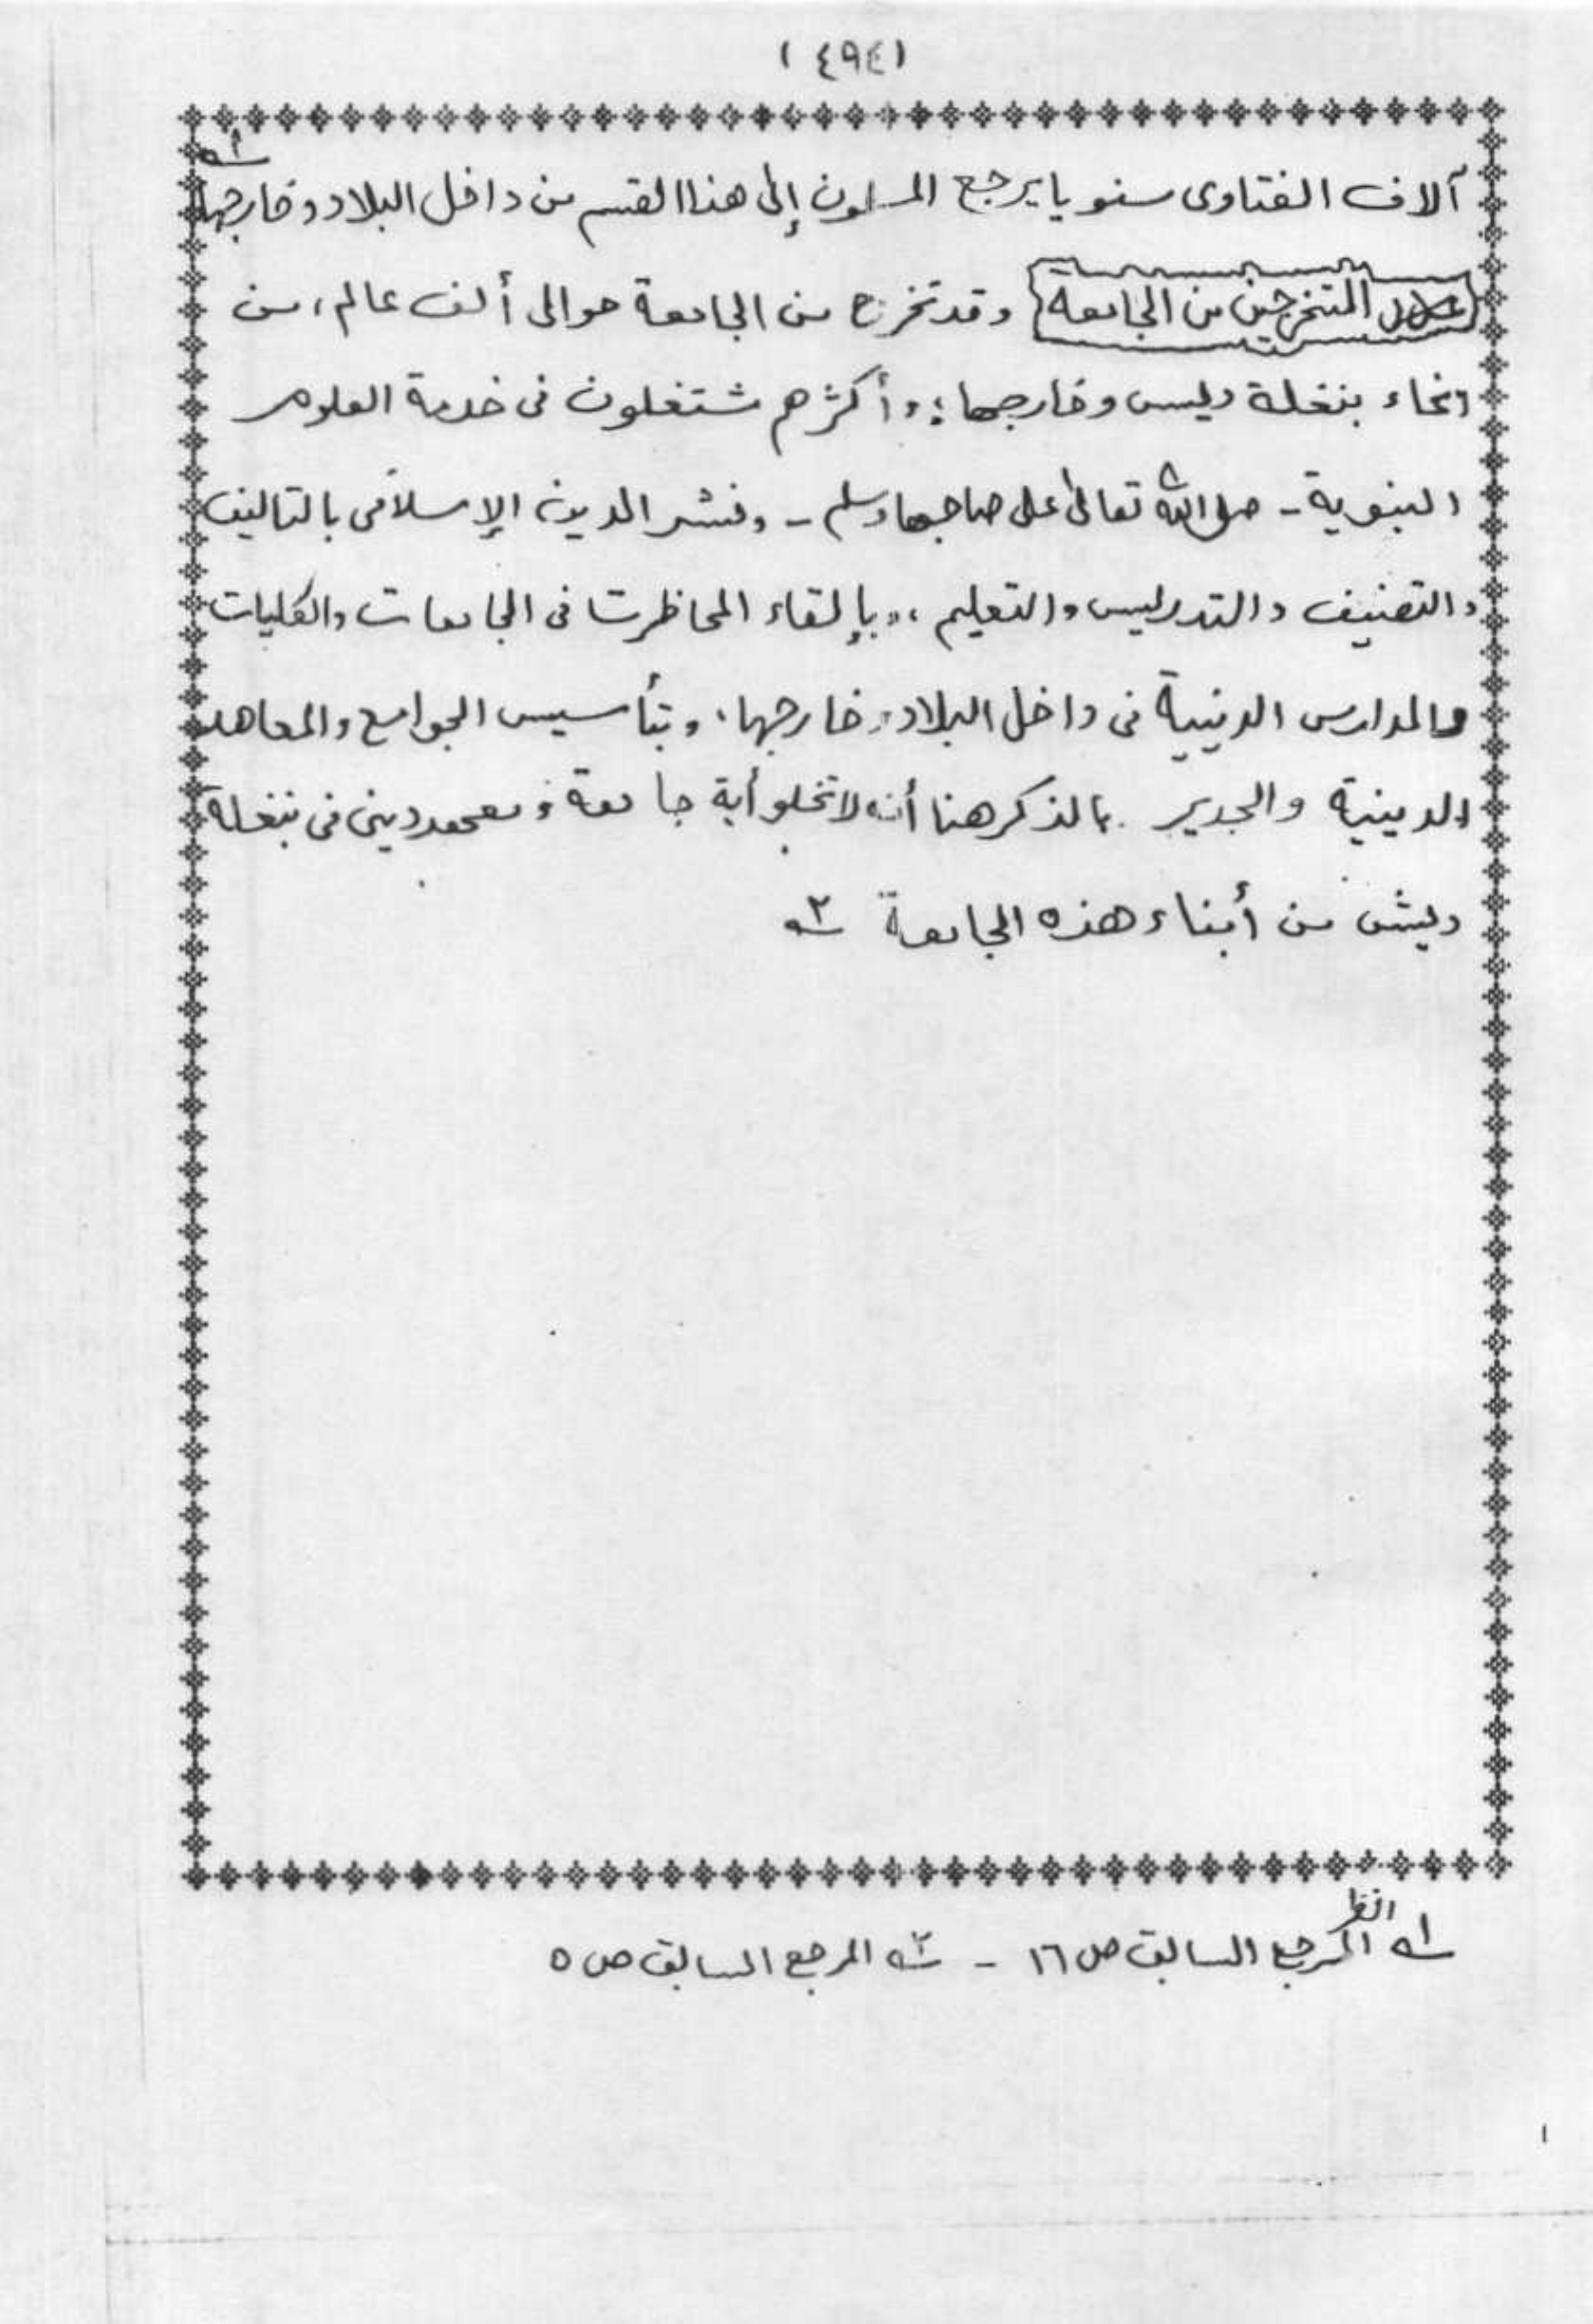 (٤٩٤)
آلاف الفتاوى سنويا يرجع المسلمون إلى هذا القسم من داخل البلاد وخارجها ١ـه
المتخرجين من الجامعة وقد تخرج من الجامعة حوالى ألف عالم، من
انحاء بنغلة ديس وخارجها؛ وأكثرهم شتغلون فى خدمة العلوم
النبوية - صلى الله تعالى على صاحبها وسلم - ونشر الدين الإسلامى بالتاليف
والتصنيف والتدريس والتعليم، وبإلقاء المحاظرت فى الجامعات والكليات
والمدارس الدينية فى داخل البلاد وخارجها، وبتأسيس الجوامع والمعاهد
الدينية والجدير بالذكر هنا أنه لا تخلو أية جامعة ومعهد دينى فى بنغلة
ديش من أبناء هذه الجامعة ٢ـه
١ـه انظر المرجع السابق ص ١٦ - ٢ـه المرجع السابق ص ٥